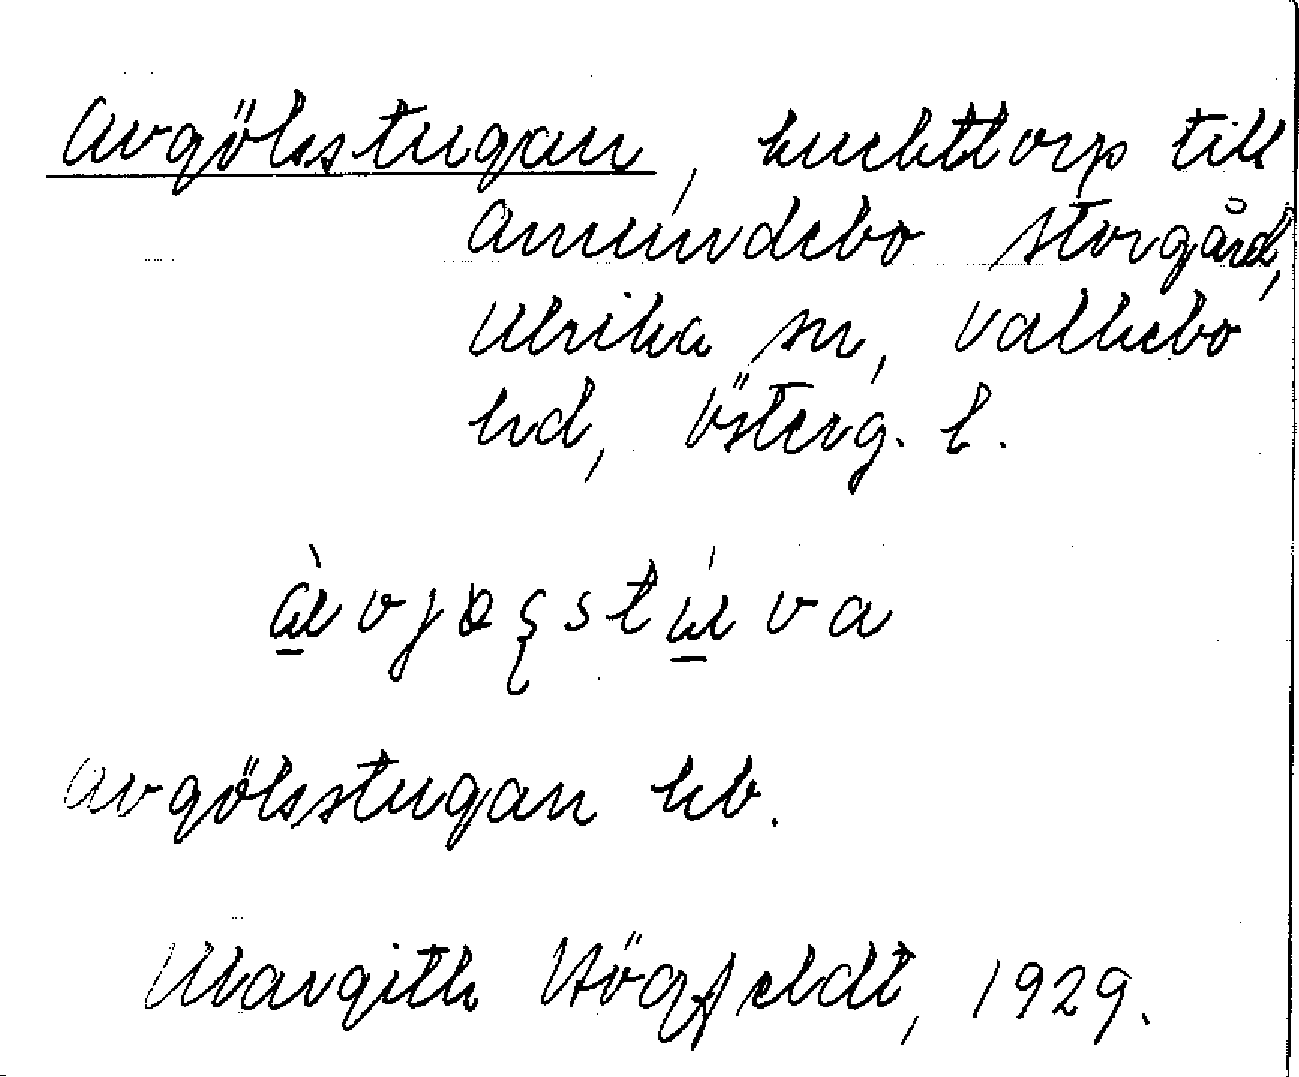 Avgölsstugan, knekttorp till
Amundebo Storgård,
Ulrika sn, Valkebo
hd, Österg. l.
Avgölsstugan kb.
Margith Högfeldt, 1929.